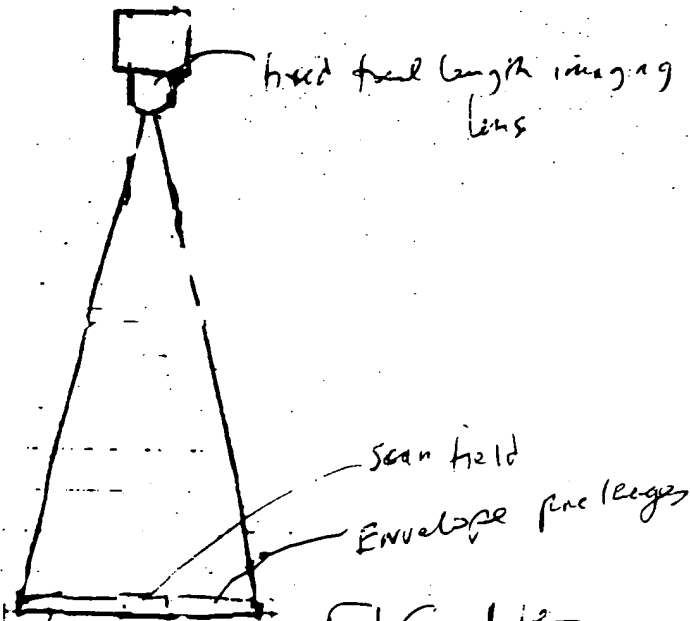 fixed focal length imaging
lens
scan field
Envelope packages